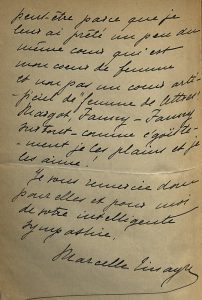 peut-être parce que je
leur ai prêté un peu du
même cœur qui est
mon cœur de femme
et non pas un cœur arti-
ficiel de femme de lettres!
Margot, Fanny – Fanny
surtout – comme égoïste-
ment je les plains et je
les aime!
Je vous remercie donc
pour elles et pour moi
de votre intelligente
sympathie.
Marcelle Tinayre